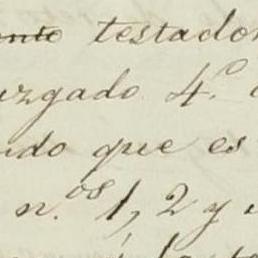 ento testador
uzgado 4.º
ndo que es
n.os 1, 2 y